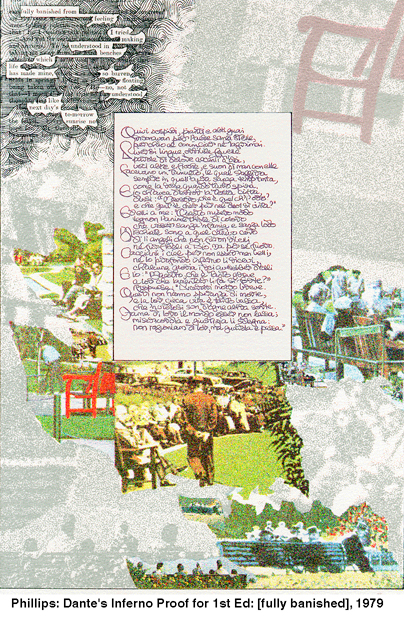 fully banished from
feeling
I tried
making
To be understood in
benches
which
life
has made mine,
so barren,
floating
no, not
understood
like
next day's
tomorrow
Quivi sospiri, pianti e alti guai
risonavan per l'aere sanza stelle,
per ch'io al cominciar ne lagrimai.
Diverse lingue, orribili favelle,
parole di dolore, accenti d'ira,
voci alte e fioche, e suon di man con elle
facevano un tumulto, il qual s'aggira
sempre in quell'aura sanza tempo tinta,
come la rena quando turbo spira.
E io ch'avea d'error la testa cinta,
dissi: "Maestro, che è quel ch'i' odo?
e che gent'è che par nel duol sì vinta?"
Ed elli a me: "Questo misero modo
tegnon l'anime triste di coloro
che visser sanza 'nfamia e sanza lodo.
Mischiate sono a quel cattivo coro
de li angeli che non furon ribelli
né fur fedeli a Dio, ma per sé fuoro.
Caccianli i ciel per non esser men belli,
né lo profondo inferno li riceve,
ch'alcuna gloria i rei avrebber d'elli."
E io: "Maestro, che è tanto greve
a lor che lamentar li fa sì forte?"
Rispuose: "Dicerolti molto breve.
Questi non hanno speranza di morte,
e la lor cieca vita è tanto bassa,
che 'nvidiosi son d'ogne altra sorte.
Fama di loro il mondo esser non lassa;
misericordia e giustizia li sdegna:
non ragioniam di lor, ma guarda e passa."
Phillips: Dante's Inferno Proof for 1st Ed: [fully banished], 1979